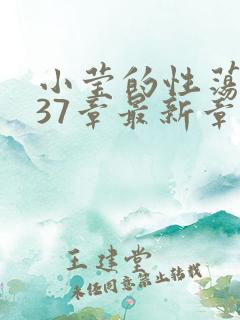 小莹的性荡
37章最新章
王建堂
未经同意禁止转载